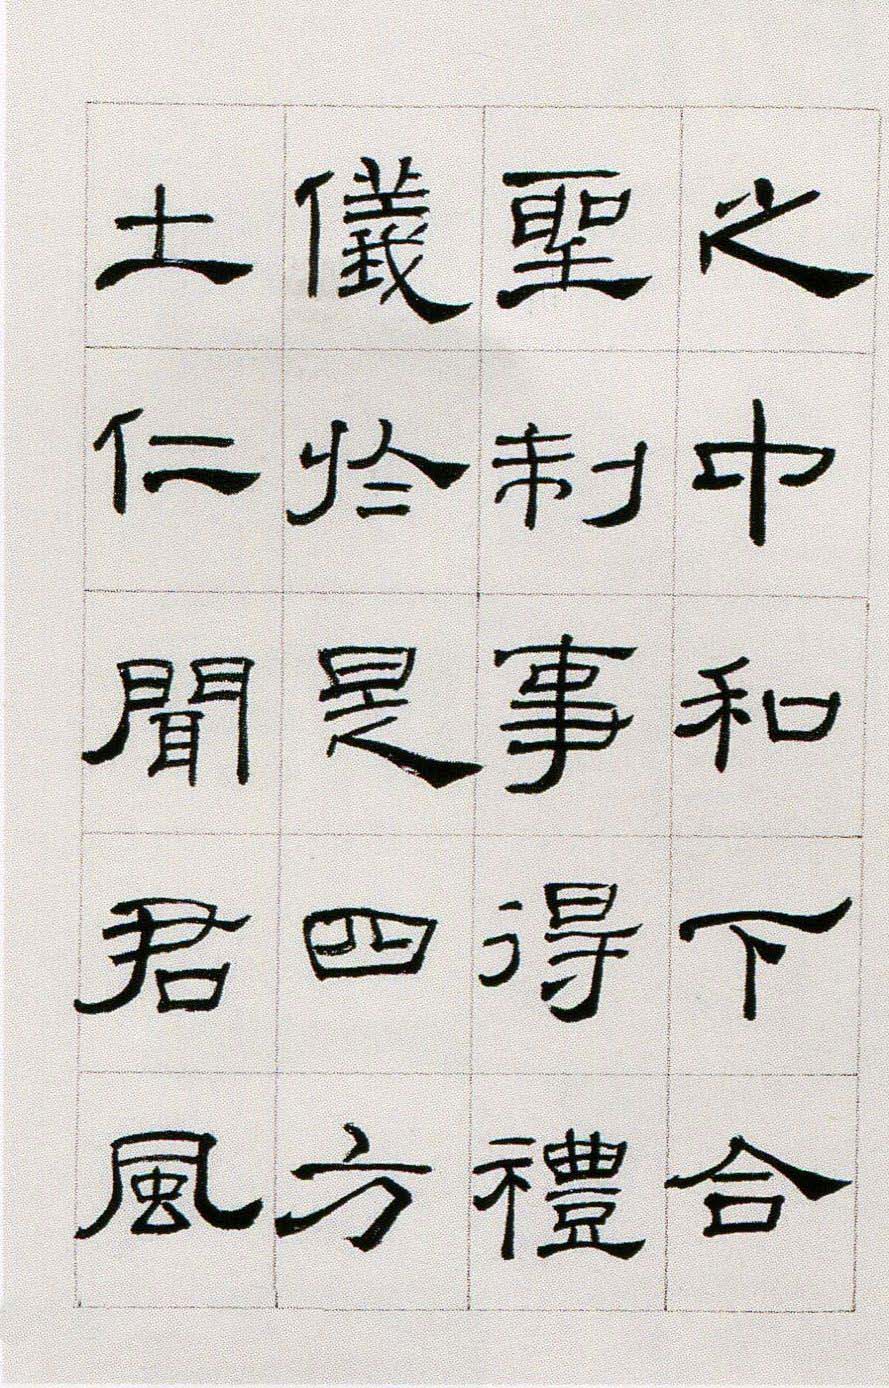 之中和下合
聖制事得禮
儀於是四方
土仁聞君風